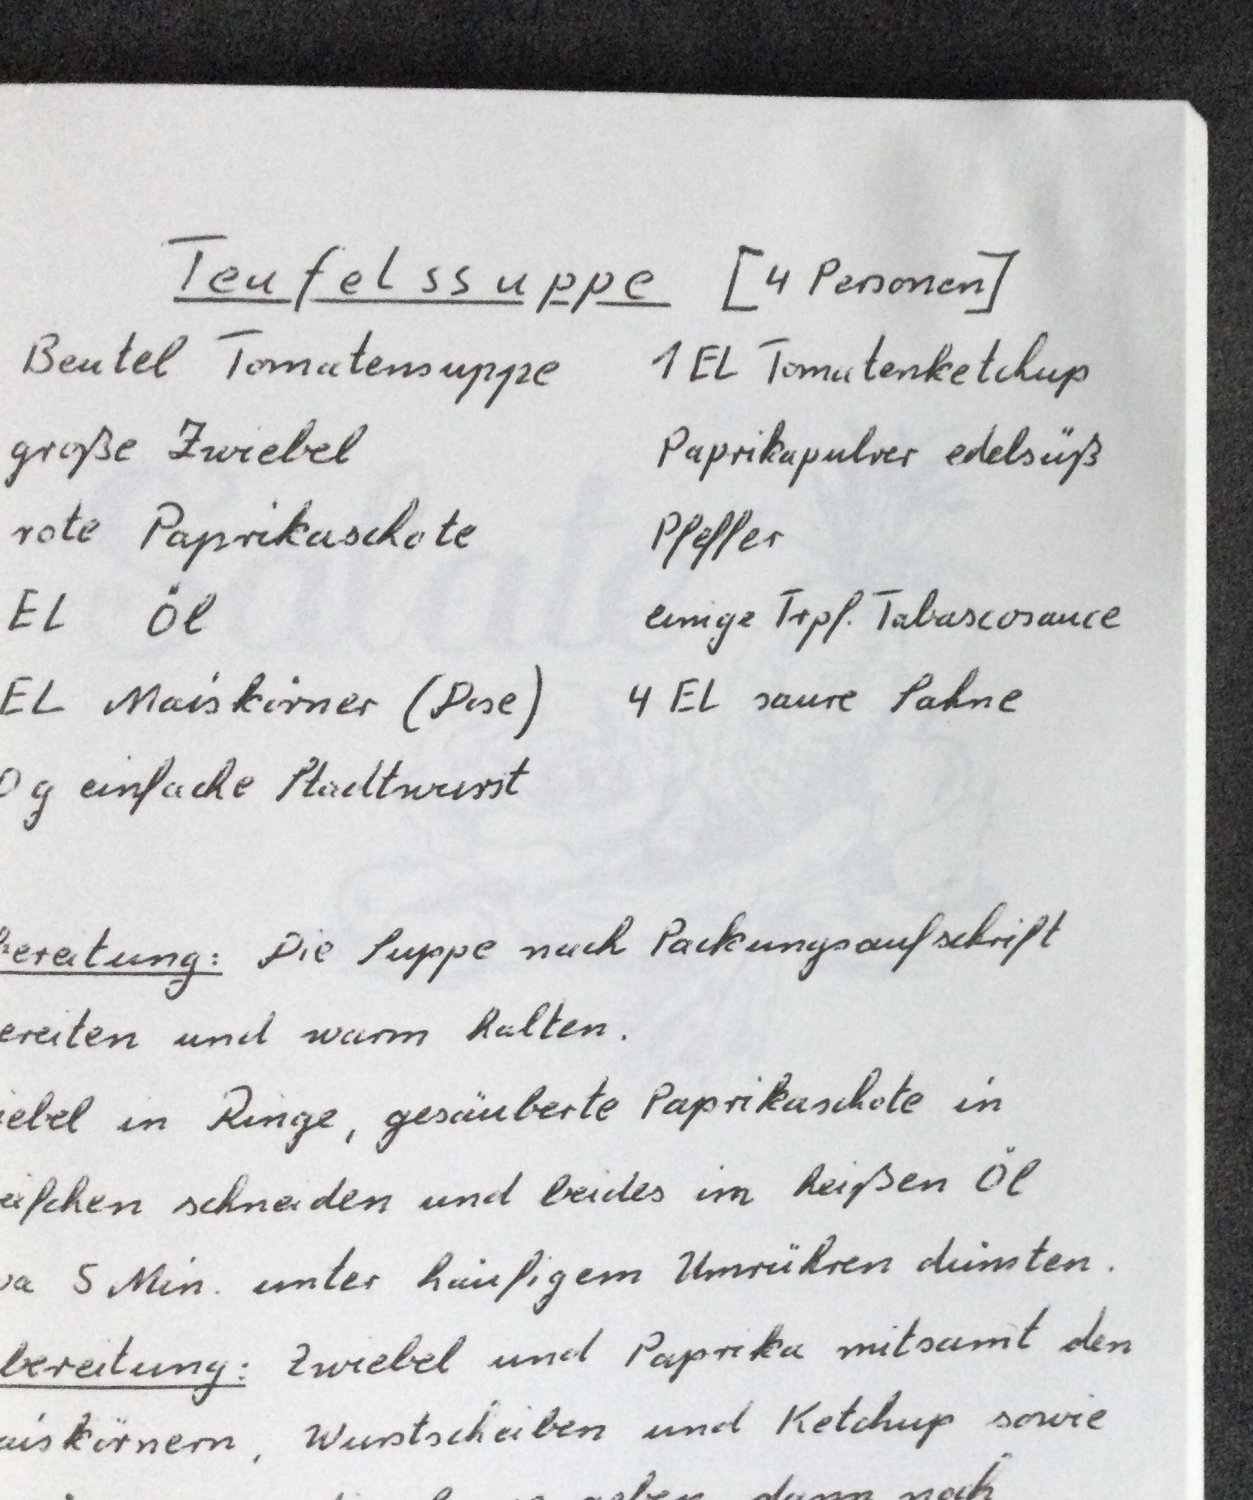 Teufelssuppe [4 Personen]
Beutel Tomatensuppe 1 EL Tomatenketchup
große Zwiebel Paprikapulver edelsüß
rote Paprikaschote Pfeffer
EL Öl einige Trpf. Tabascosauce
EL Maiskörner (Dose) 4 EL saure Sahne
0 g einfache Stadtwurst
bereitung: Die Suppe nach Packungsaufschrift
ereiten und warm halten.
iebel in Ringe, gesäuberte Paprikaschote in
eifchen schneiden und beides im heißen Öl
wa 5 Min. unter häufigem Umrühren dünsten.
bereitung: Zwiebel und Paprika mitsamt den
aiskörnern, Wurstscheiben und Ketchup sowie
geben, dann noch